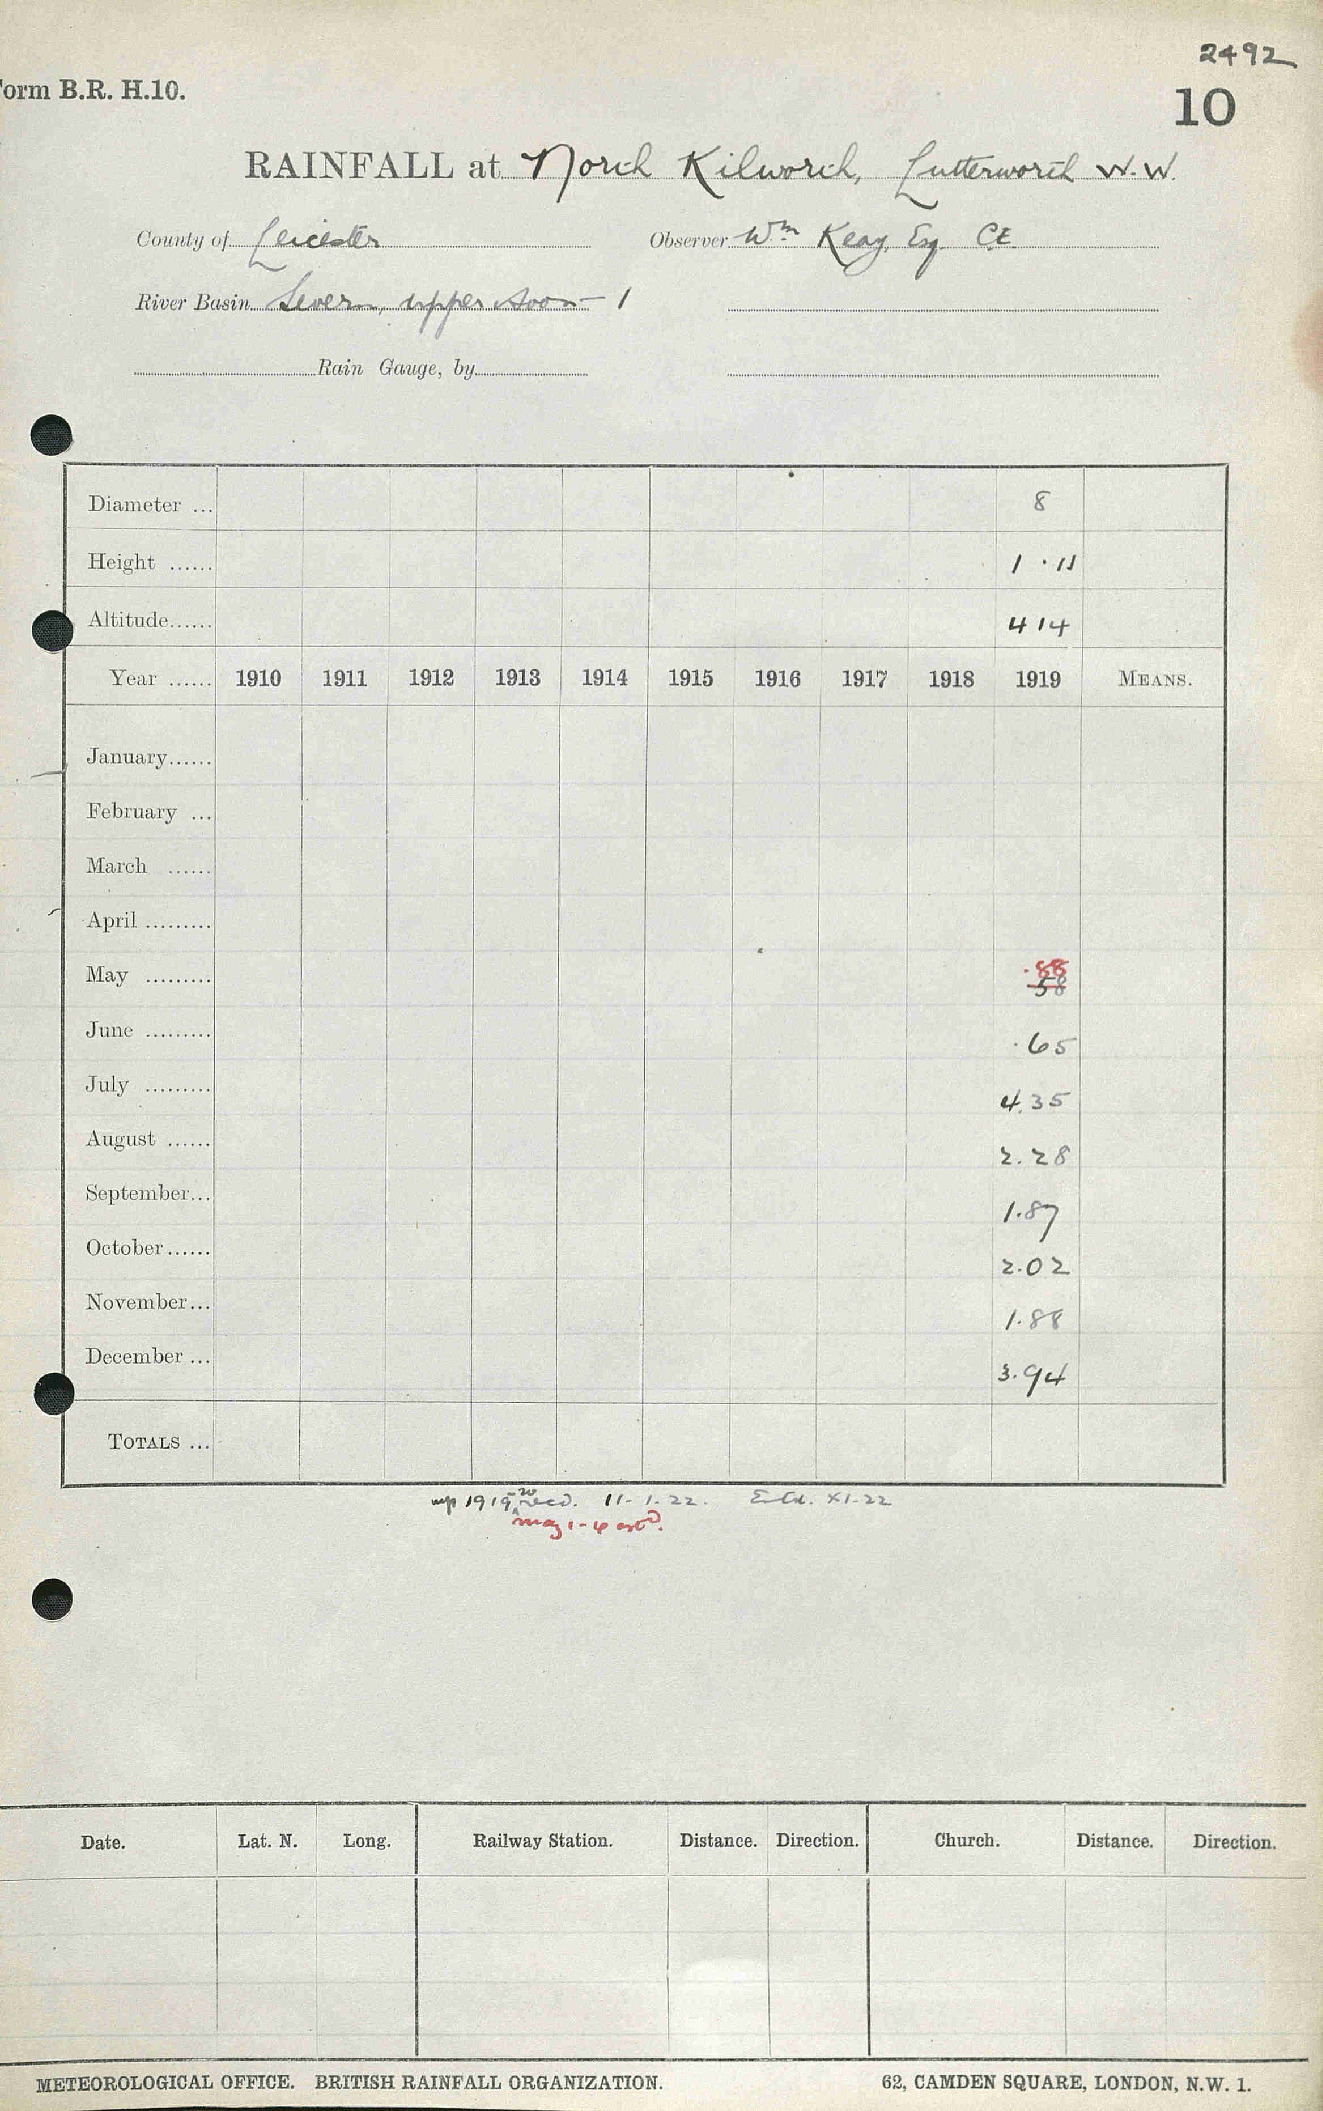 2492
Form B.R. H.10.
10
RAINFALL at North Kilworth, Lutterworth W.W.
County of Leicester Observer Wm Keay, Esq. C.E.
River Basin Severn, upper Avon - 1
Rain Gauge, by
Diameter ... 8
Height ...... 1 . 11
Altitude...... 414
Year ...... 1910 1911 1912 1913 1914 1915 1916 1917 1918 1919 MEANS.
January......
February ...
March ......
April .........
May ......... .88
58
June ......... .65
July ......... 4.35
August ...... 2.28
September... 1.87
October...... 2.02
November... 1.88
December ... 3.94
TOTALS ...
1919-20 recd. 11-1-22. Entd. XI-22
May 1-6 estd.
Date. Lat. N. Long. Railway Station. Distance. Direction. Church. Distance. Direction.
METEOROLOGICAL OFFICE. BRITISH RAINFALL ORGANIZATION. 62, CAMDEN SQUARE, LONDON, N.W. 1.